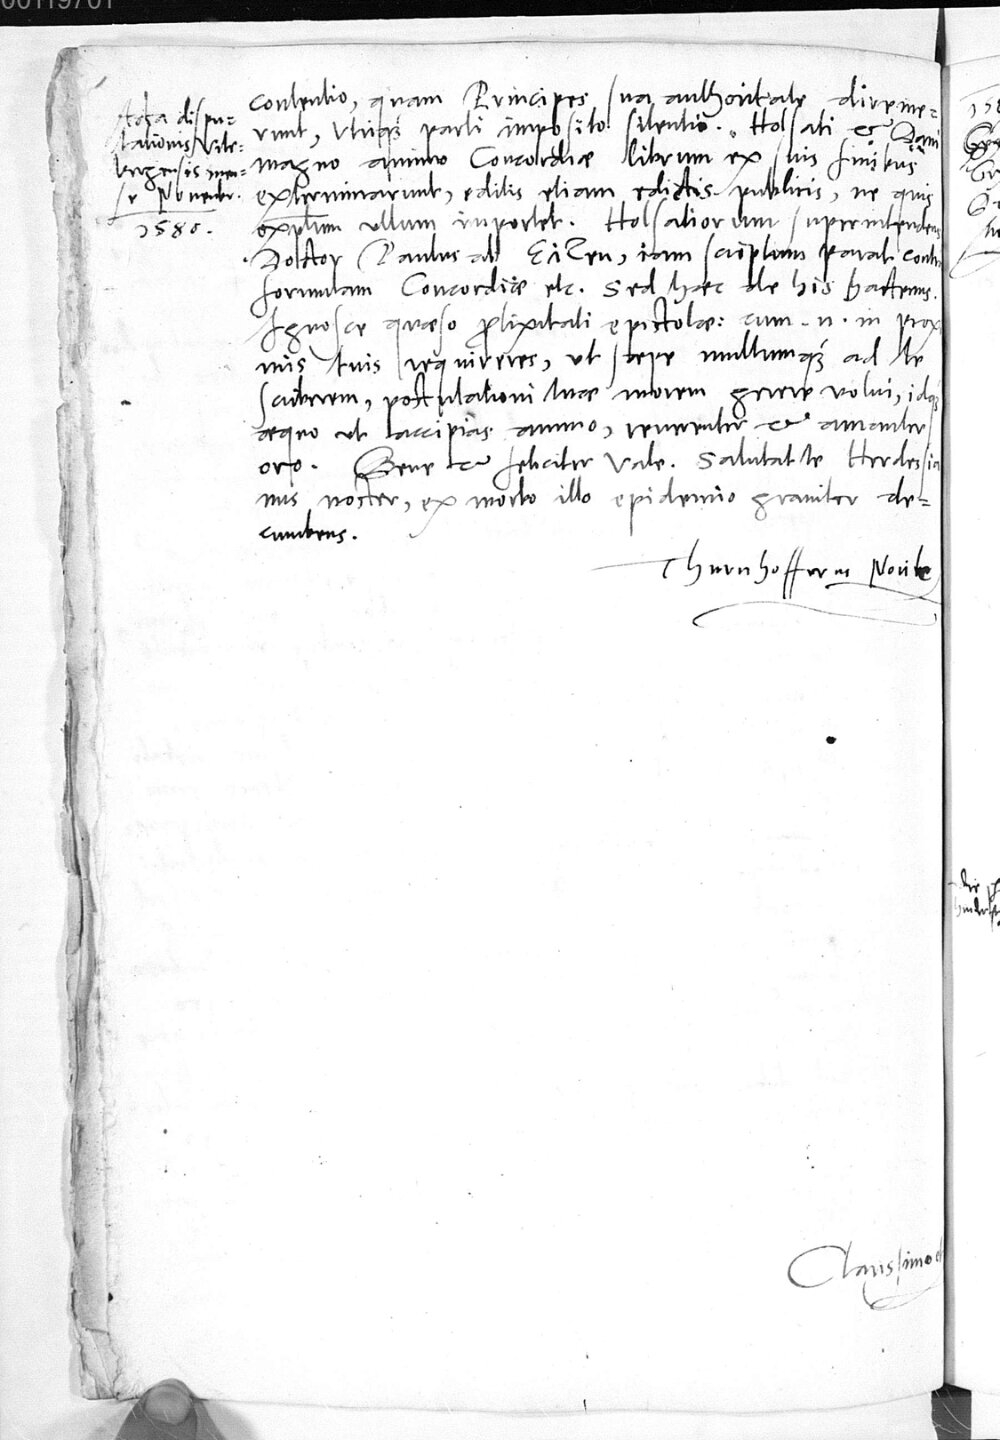 00119701
Acta dispu-
tationis Vite-
bergensis men-
se Novembr.
1580.
contentio, quam Principes sua authoritate direme-
runt, utriq́ꝫ parti imposito silentio. Holsati et Dani
magno animo Concordiae librum ex suis finibus
exterminarunt, editis etiam edictis publicis, ne quis
exemplum ullum importet. Holsatiorum superintendens
Doctor Paulus ab Eitzen, iam scriptum parat contra
formulam Concordiae etc. Sed haec de his hactenus.
Ignosce quaeso prolixitati epistolae: cum .n. in proxi
mis tuis requireres, ut saepe multumq́ꝫ ad te
scriberem, postulationi tuae morem gerere volui, idq́ꝫ
aequo ut accipias animo, reverenter et amanter
oro. Bene et feliciter Vale. Salutat te Herdesia
nus noster, ex morbo illo epidemio graviter de-
cumbens.
Thurnhofferus
Clarissimo